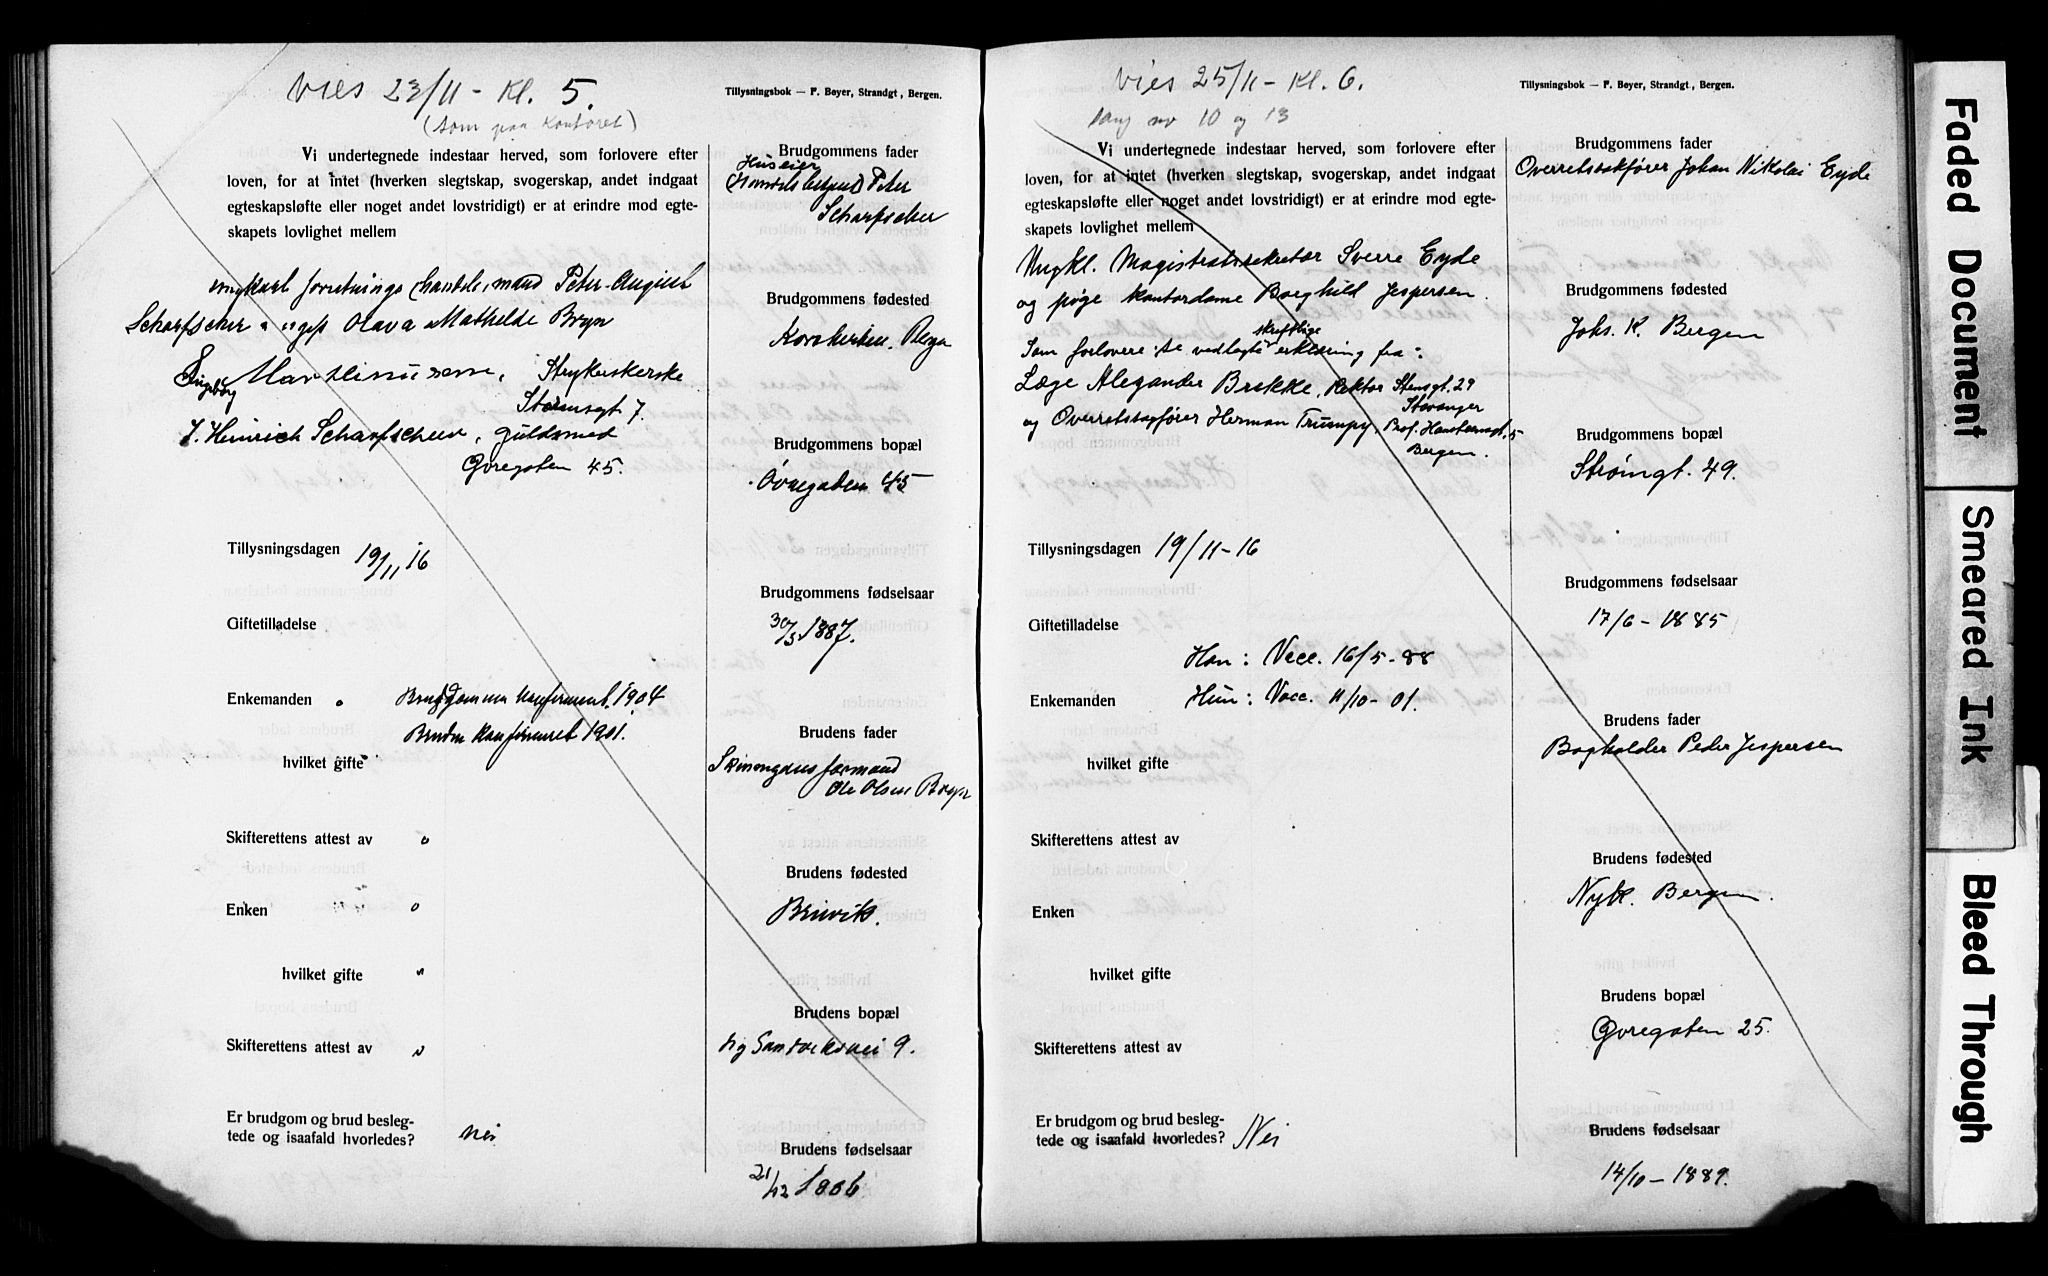 Vies 23/11 - Kl. 5.
(som paa Kontoret)
Tillysningsbok — F. Bøyer, Strandgt., Bergen.
Vi undertegnede indestaar herved, som forlovere efter
loven, for at intet (hverken slegtskap, svogerskap, andet indgaat
egteskapsløfte eller noget andet lovstridigt) er at erindre mod egte-
skapets lovlighet mellem
ungkarl forretnings (handels) mand Peter August
Scharfscher og ugift Olava Mathilde Brynn
Ingeborg Marthinussen, Strykerske
Stormsgt 7.
J. Heinrich Scharfscher, Guldsmed
Øvregaten 45.
Tillysningsdagen 19/11 16
Giftetilladelse
Enkemanden " Brudgommen konfirmert 1904
Bruden konfirmeret 1901.
hvilket gifte "
Skifterettens attest av "
Enken "
hvilket gifte "
Skifterettens attest av "
Er brudgom og brud besleg-
tede og isaafald hvorledes? nei
Brudgommens fader
Huseier
Peter
Scharfscher
Brudgommens fødested
Korskirken, Bergen
Brudgommens bopæl
Øvregaden 45
Brudgommens fødselsaar
30/3 1887.
Brudens fader
formand
Ole Olsen
Brudens fødested
Brudens bopæl
Sandviksvei 9.
Brudens fødselsaar
21/12 1886
Vies 25/11 - Kl. 6.
sang no 10 og 13
Tillysningsbok — F. Bøyer, Strandgt., Bergen.
Vi undertegnede indestaar herved, som forlovere efter
loven, for at intet (hverken slegtskap, svogerskap, andet indgaat
egteskapsløfte eller noget andet lovstridigt) er at erindre mod egte-
skapets lovlighet mellem
Ungkl. Magistratssekretær Sverre Eyde
og pige kontordame Borghild Jespersen.
Som forlovere se vedlagte skriftlige erklæring fra:
Læge Alexander Brekke, Rektor Stensgt. 29
Stavanger
og Overretssagfører Herman Trumpy, Prof. Hansteensgt. 5
Bergen.
Tillysningsdagen 19/11-16
Giftetilladelse
Han: Vacc. 16/5-88
Enkemanden Hun: Vacc. 11/10-01.
hvilket gifte
Skifterettens attest av
Enken
hvilket gifte
Skifterettens attest av
Er brudgom og brud besleg-
tede og isaafald hvorledes? Nei
Brudgommens fader
Overretssakfører Johan Nikolai Eyde
Brudgommens fødested
Johs. K. Bergen
Brudgommens bopæl
Strømgt. 49.
Brudgommens fødselsaar
17/6-1885
Brudens fader
Bogholder Peder Jespersen
Brudens fødested
Nyk. Bergen.
Brudens bopæl
Øvregaten 25.
Brudens fødselsaar
14/10-1889.
Faded Document
Smeared Ink
Bleed Through